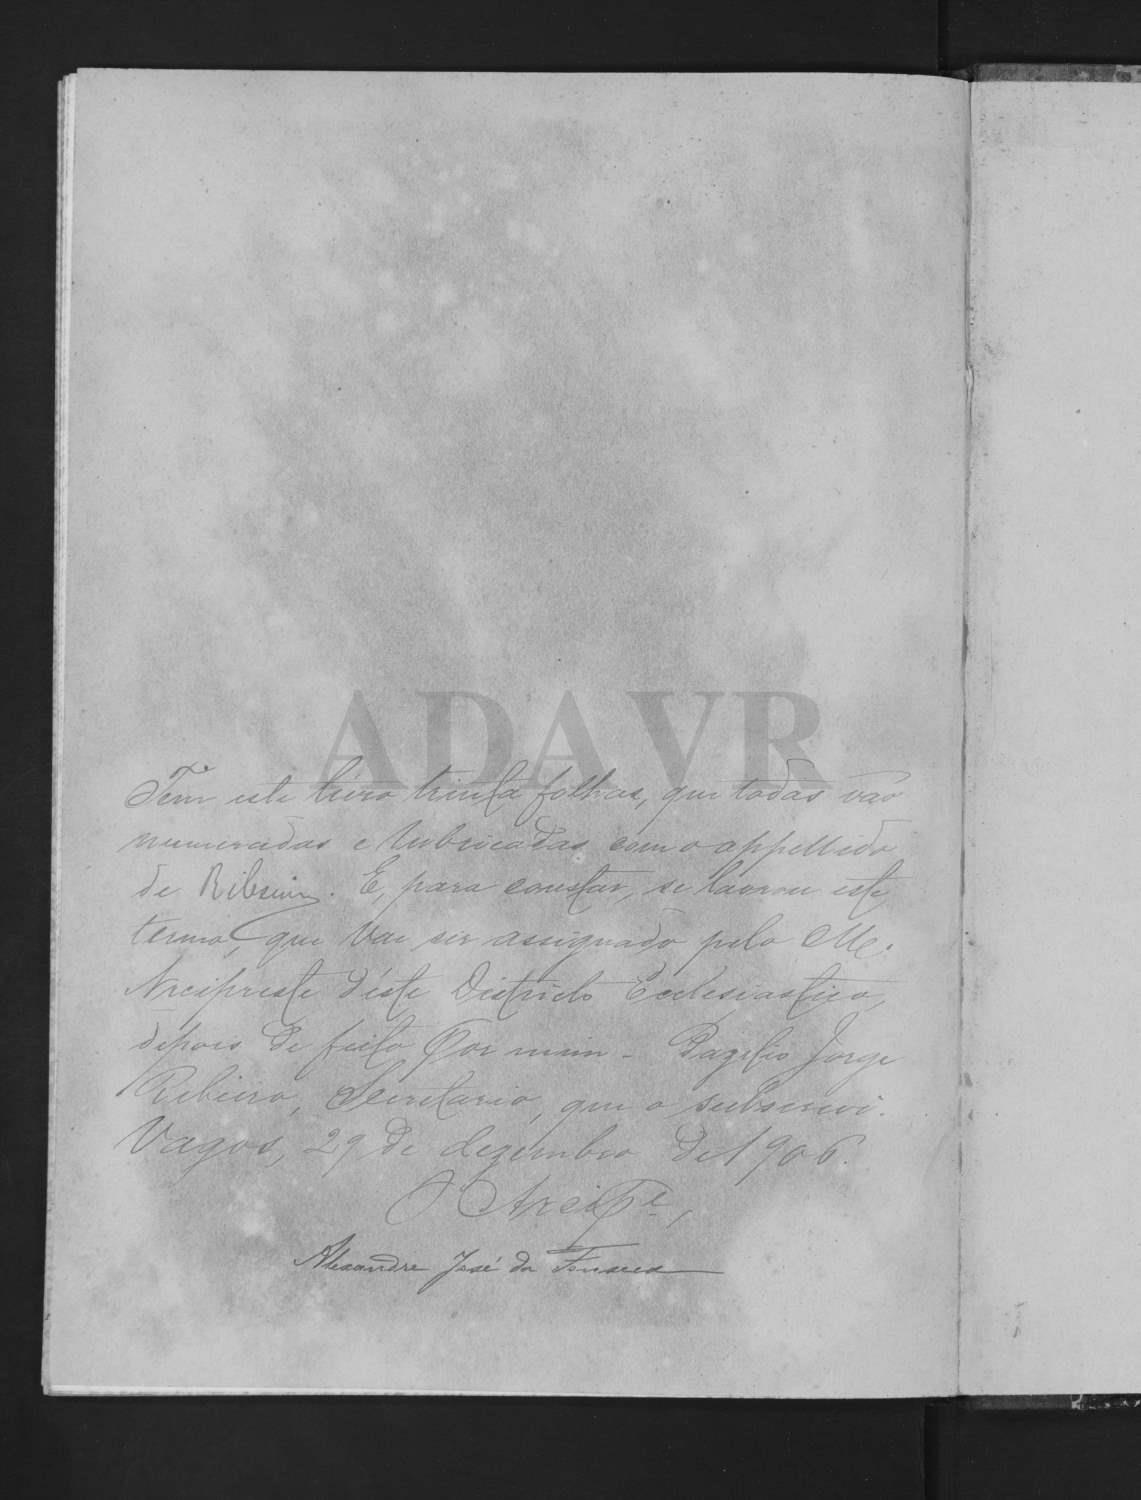 ADAVR
Tem este livro trinta folhas, que todas vão
numeradas e rubricadas com o appellido
de Ribeiro. E, para constar, se lavrou este
termo, que vae ser assignado pelo M.
Arcipreste d'este Districto Ecclesiastico,
depois de feito por mim - Bazilio Jorge
Ribeiro, Secretario, que o subscrevi.
Vagos, 29 de dezembro de 1906.
O Arcip.e,
Alexandre José da Fonseca